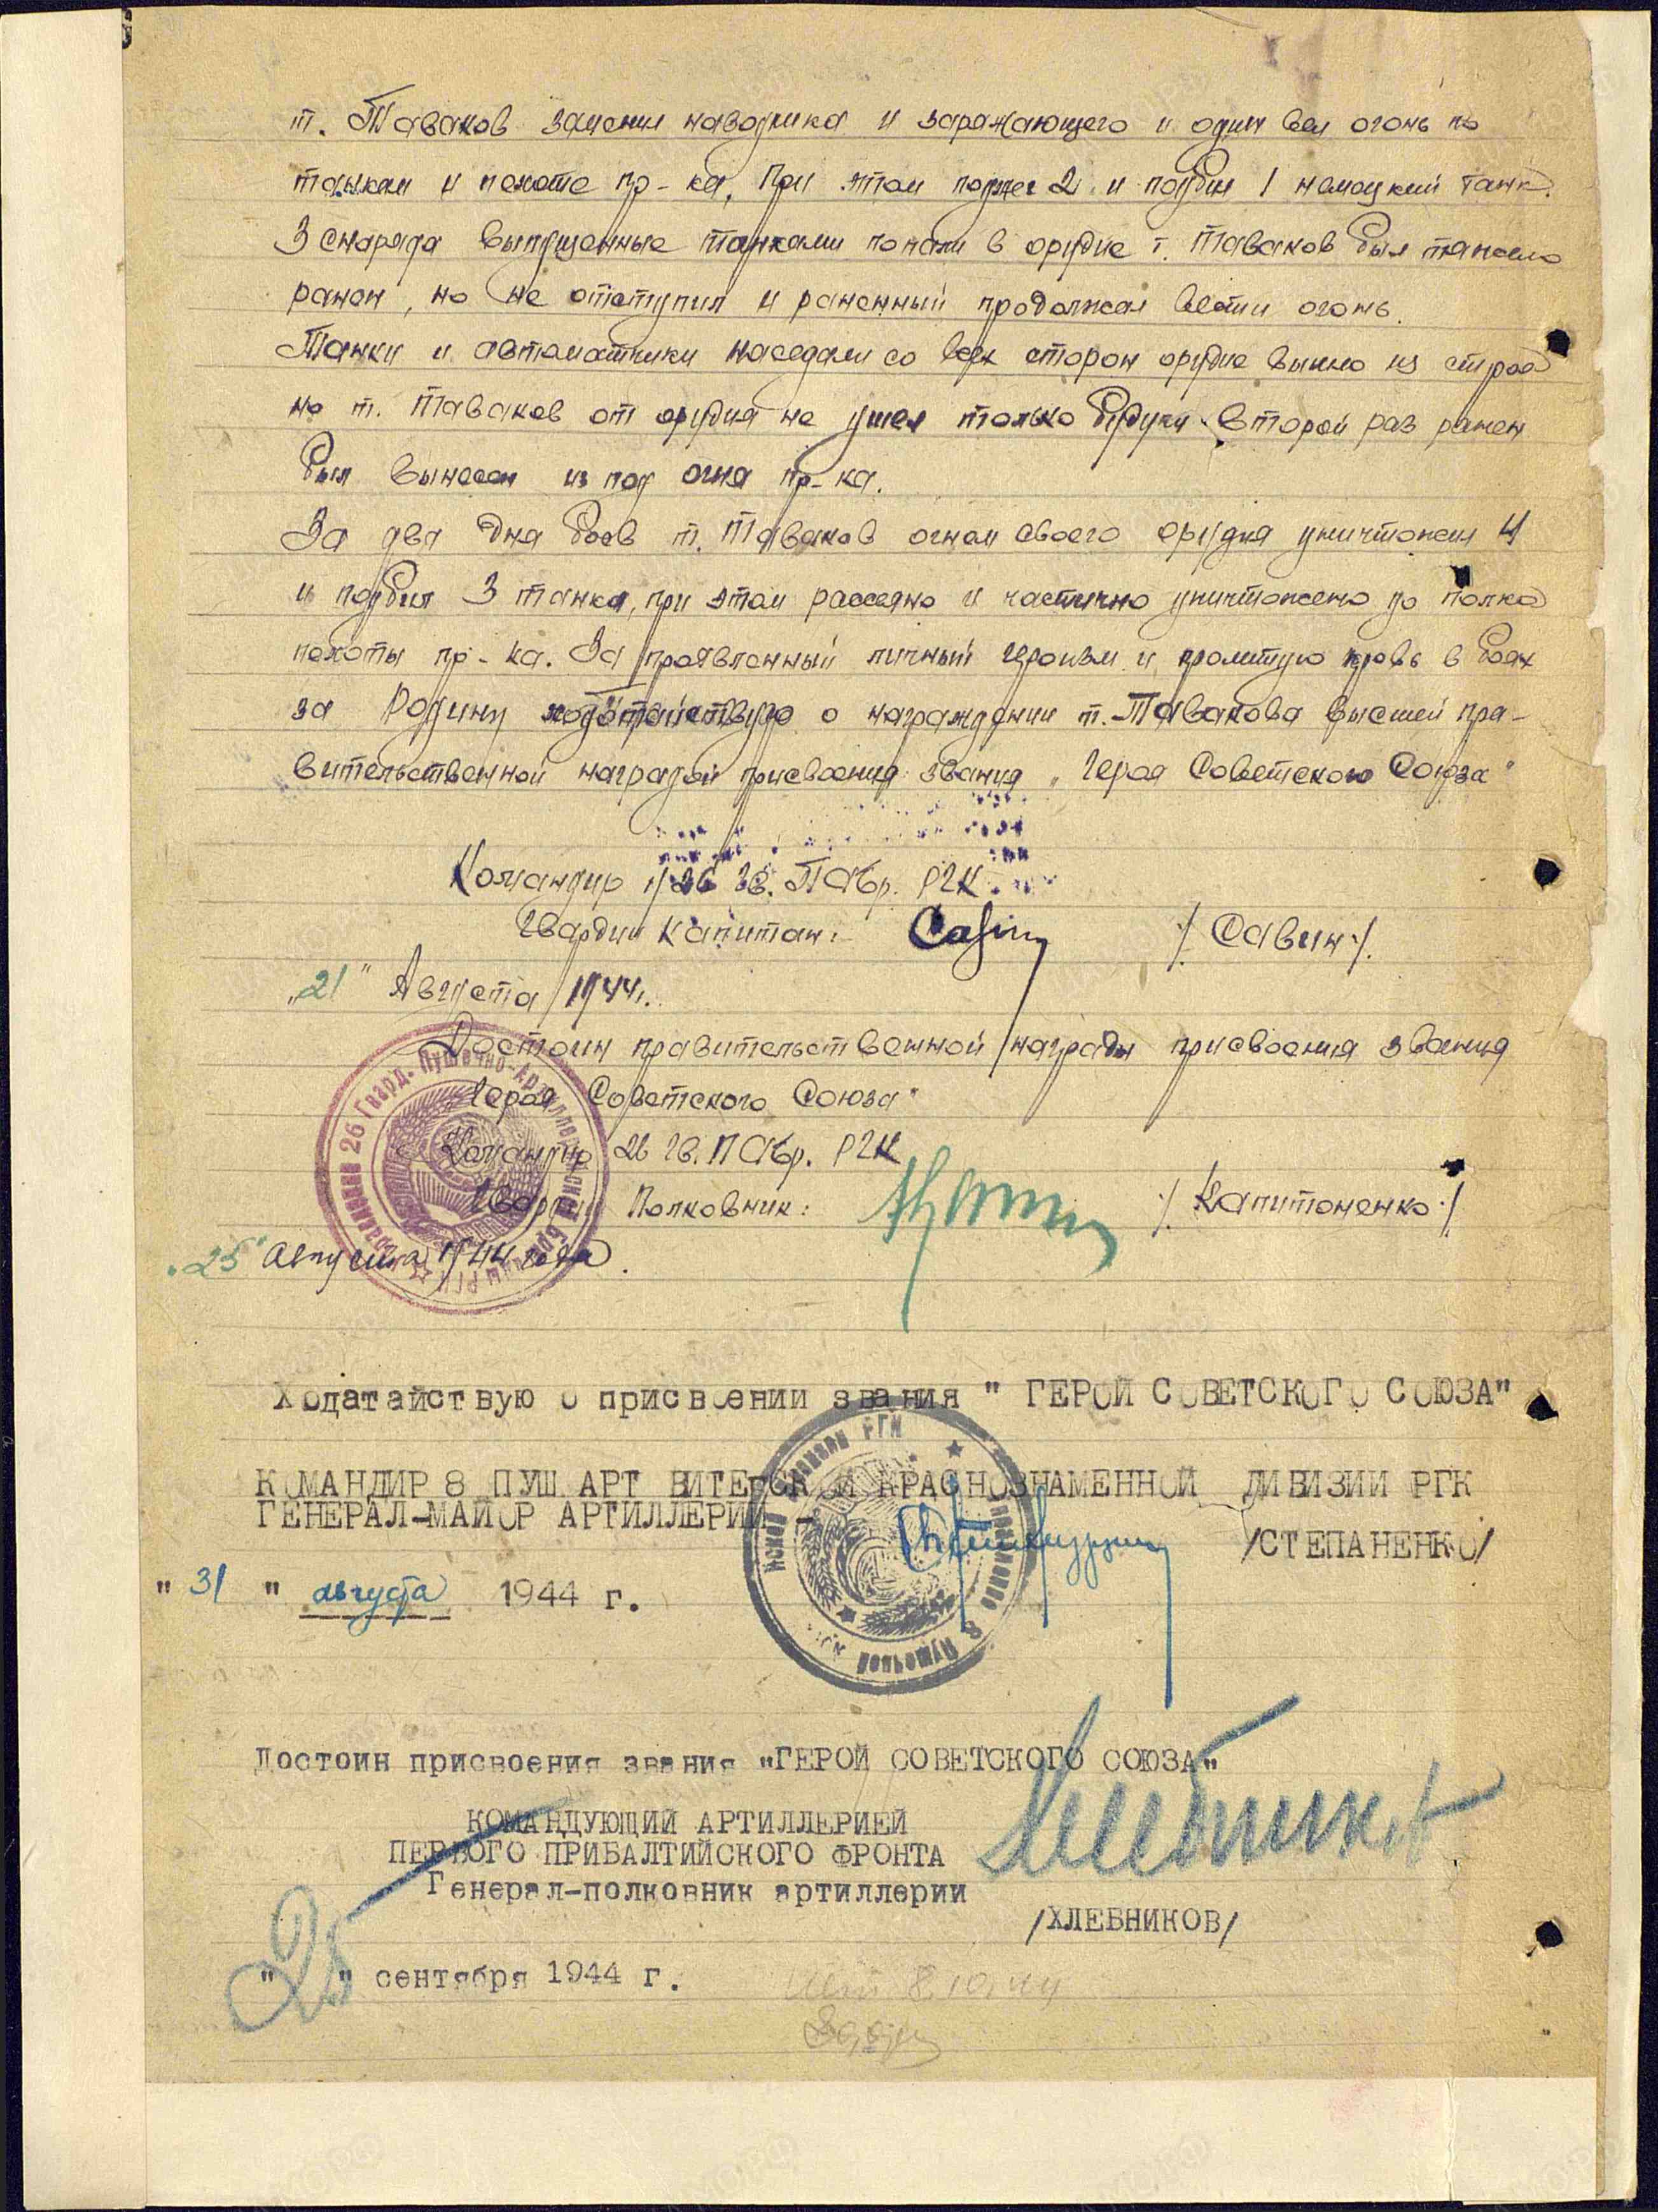 т. Таваков заменил наводчика и заряжающего и один вел огонь по
танкам и пехоте пр-ка, При этом поджег 2 и подбил 1 немецкий танк.
3 снаряда выпущенные танками попали в орудие т. Таваков был тяжело
ранен, но не отступил и раненный продолжал вести огонь.
Танки и автоматчики наседали со всех сторон орудие вышло из строя
но т. Таваков от орудия не ушел только будучи второй раз ранен
был вынесен из под огня пр-ка.
За два дня боев т. Таваков огнем своего орудия уничтожил 4
и подбил 3 танка, при этом рассеяно и частично уничтожено до полка
пехоты пр-ка. За проявленный личный героизм и пролитую кровь в боях
за Родину ходотайствую о награждении т. Тавакова высшей пра-
вительственной наградой присвоения звания „Героя Советского Союза"
Командир 1/26 Гв. ПАбр. РГК
Гвардии Капитан: /Савин/.
„21" Августа 1944г.
Достоин правительственной награды присвоения звания
Героя Советского Союза"
Командир 26 Гв. ПАбр. РГК
Гвардии Полковник: /Капитоненко/
„25" августа 1944 года.
26 Гвард. Пушечно-Артиллерийской бригады РГК
Ходатайствую о присвоении звания " ГЕРОЙ СОВЕТСКОГО СОЮЗА"
КОМАНДИР 8 ПУШ АРТ ВИТЕБСКОЙ КРАСНОЗНАМЕННОЙ ДИВИЗИИ РГК
ГЕНЕРАЛ-МАЙОР АРТИЛЛЕРИИ -
/СТЕПАНЕНКО/
" 31 " августа 1944 г.
8 Пушечной
Достоин присвоения звания "ГЕРОЙ СОВЕТСКОГО СОЮЗА"
КОМАНДУЮЩИЙ АРТИЛЛЕРИЕЙ
ПЕРВОГО ПРИБАЛТИЙСКОГО ФРОНТА
Генерал-полковник артиллерии
Хлебников
/ХЛЕБНИКОВ/
"25" сентября 1944 г.
8.10.44